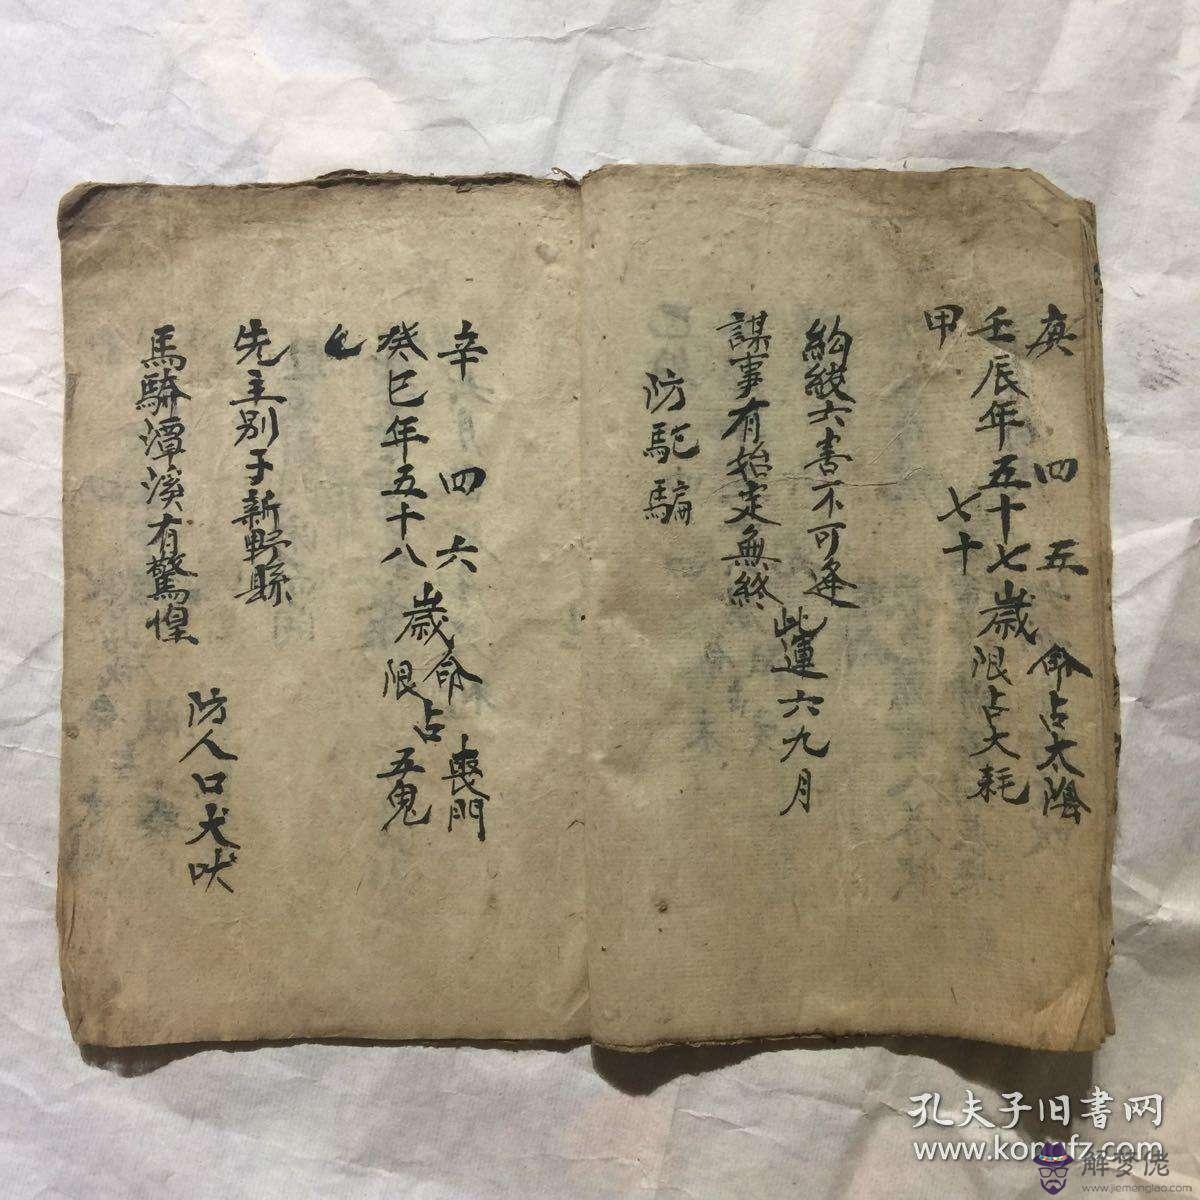 庚 四 五 命占太陰
壬辰年五十七歲 限占大耗
甲 七十
六害不可逢
謀事有始定無終
此運六九月
防 騙
辛 四 六 命 喪門
癸巳年五十八歲 限占五鬼
先主別于新野縣
馬騎潭溪有驚惶
防人口犬吠
孔夫子旧書网
www.kongfz.com
解梦佬
www.jiemenglao.com